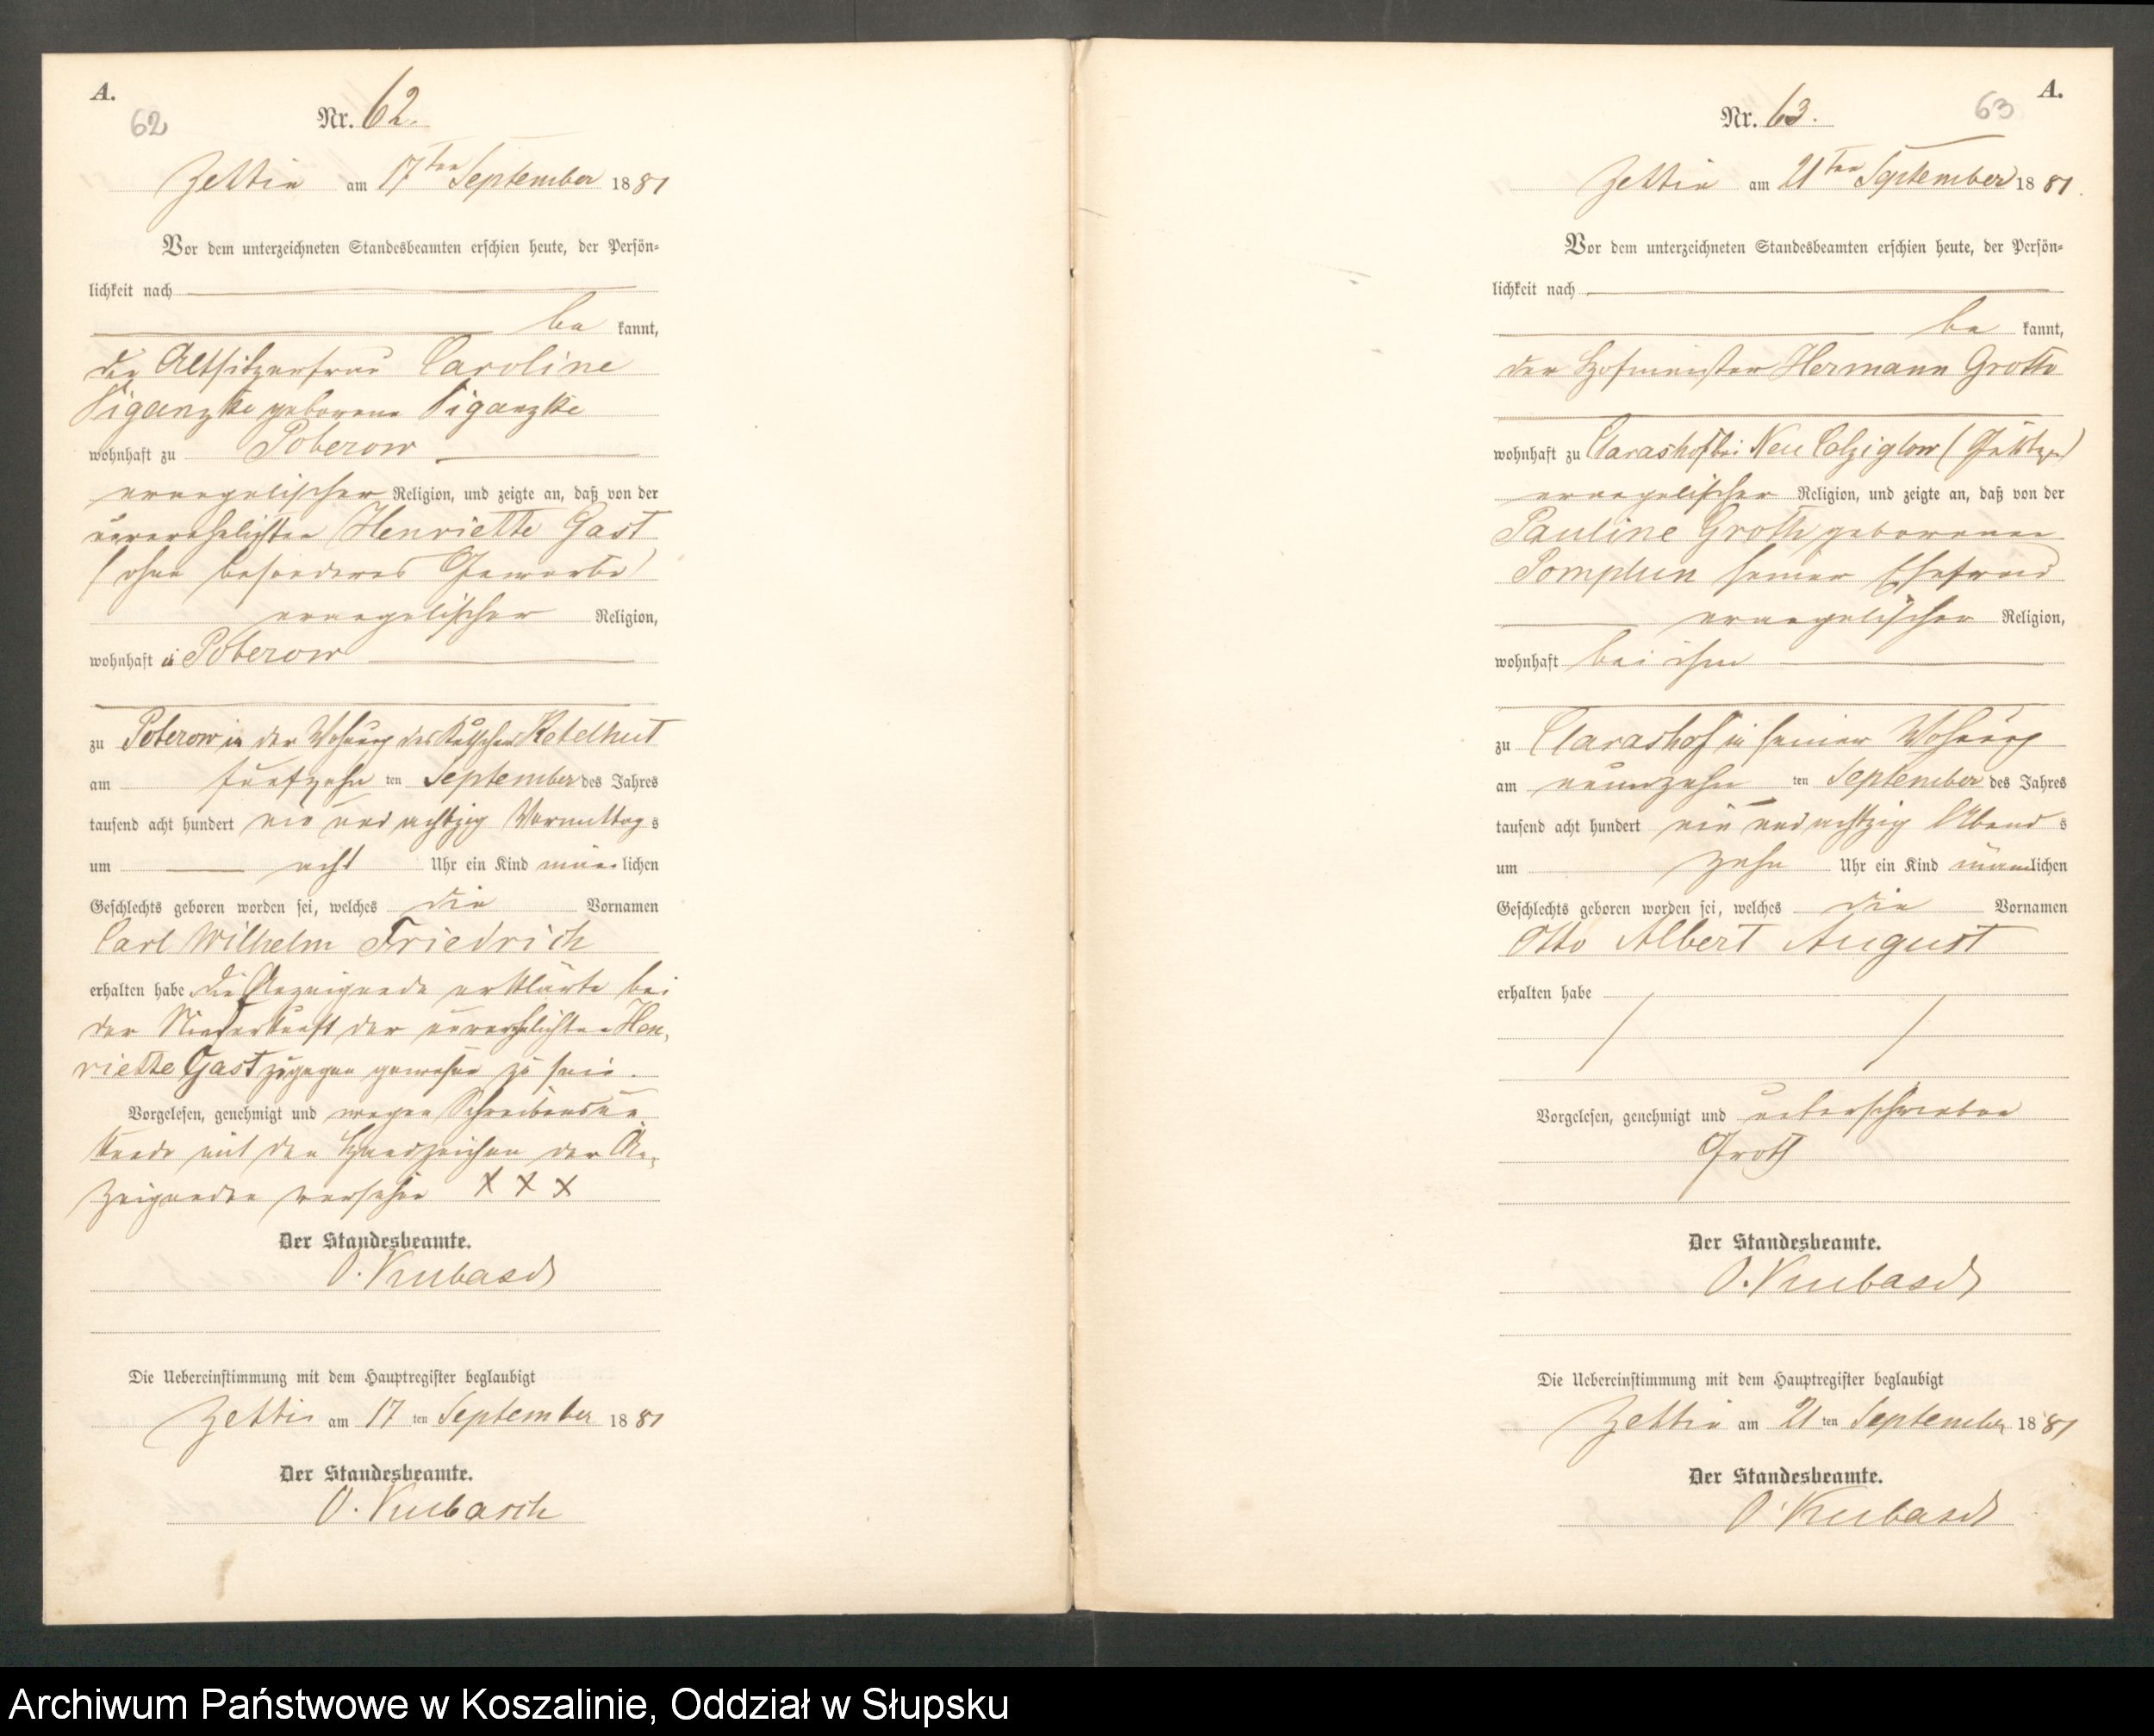 A.
62
Nr. 62.
Zettin am 17ten September 1881
Vor dem unterzeichneten Standesbeamten erschien heute, der Persön-
lichkeit nach
be kannt,
die Altsitzerfrau Caroline
Piganzke geborene Piganzke
wohnhaft zu Poberow
evangelischer Religion, und zeigte an, daß von der
unverehelichten Henriette Gast
(ohne besonderes Gewerbe)
evangelischer Religion,
wohnhaft in Poberow
zu Poberow in der Wohnung des Ketelhut
am fünfzehn ten September des Jahres
tausend acht hundert ein und achtzig Vormittag s
um acht Uhr ein Kind männ lichen
Geschlechts geboren worden sei, welches die Vornamen
Carl Wilhelm Friedrich
erhalten habe. Die Anzeigende erklärte bei
der Niederkunft der unverehelichten Hen-
riette Gast zugegen gewesen zu sein.
Vorgelesen, genehmigt und wegen Schreibensun
kunde mit den Handzeichen der An-
zeigenden versehen X X X
Der Standesbeamte.
O. Kubasch
Die Uebereinstimmung mit dem Hauptregister beglaubigt
Zettin am 17 ten September 1881
Der Standesbeamte.
O. Kubasch
A.
63
Nr. 63.
Zettin am 21ten September 1881.
Vor dem unterzeichneten Standesbeamten erschien heute, der Persön-
lichkeit nach
be kannt,
der Hofmeister Hermann Groth
wohnhaft zu Clarashof bei Neu Colziglow
evangelischer Religion, und zeigte an, daß von der
Pauline Groth geborenen
Pomplun seiner Ehefrau
evangelischer Religion,
wohnhaft bei ihm
zu Clarashof in seiner Wohnung
am neunzehn ten September des Jahres
tausend acht hundert ein und achtzig Abend s
um zehn Uhr ein Kind männlichen
Geschlechts geboren worden sei, welches die Vornamen
Otto Albert August
erhalten habe
Vorgelesen, genehmigt und unterschrieben
Groth
Der Standesbeamte.
O. Kubasch
Die Uebereinstimmung mit dem Hauptregister beglaubigt
Zettin am 21 ten September 1881
Der Standesbeamte.
O. Kubasch
Archiwum Państwowe w Koszalinie, Oddział w Słupsku